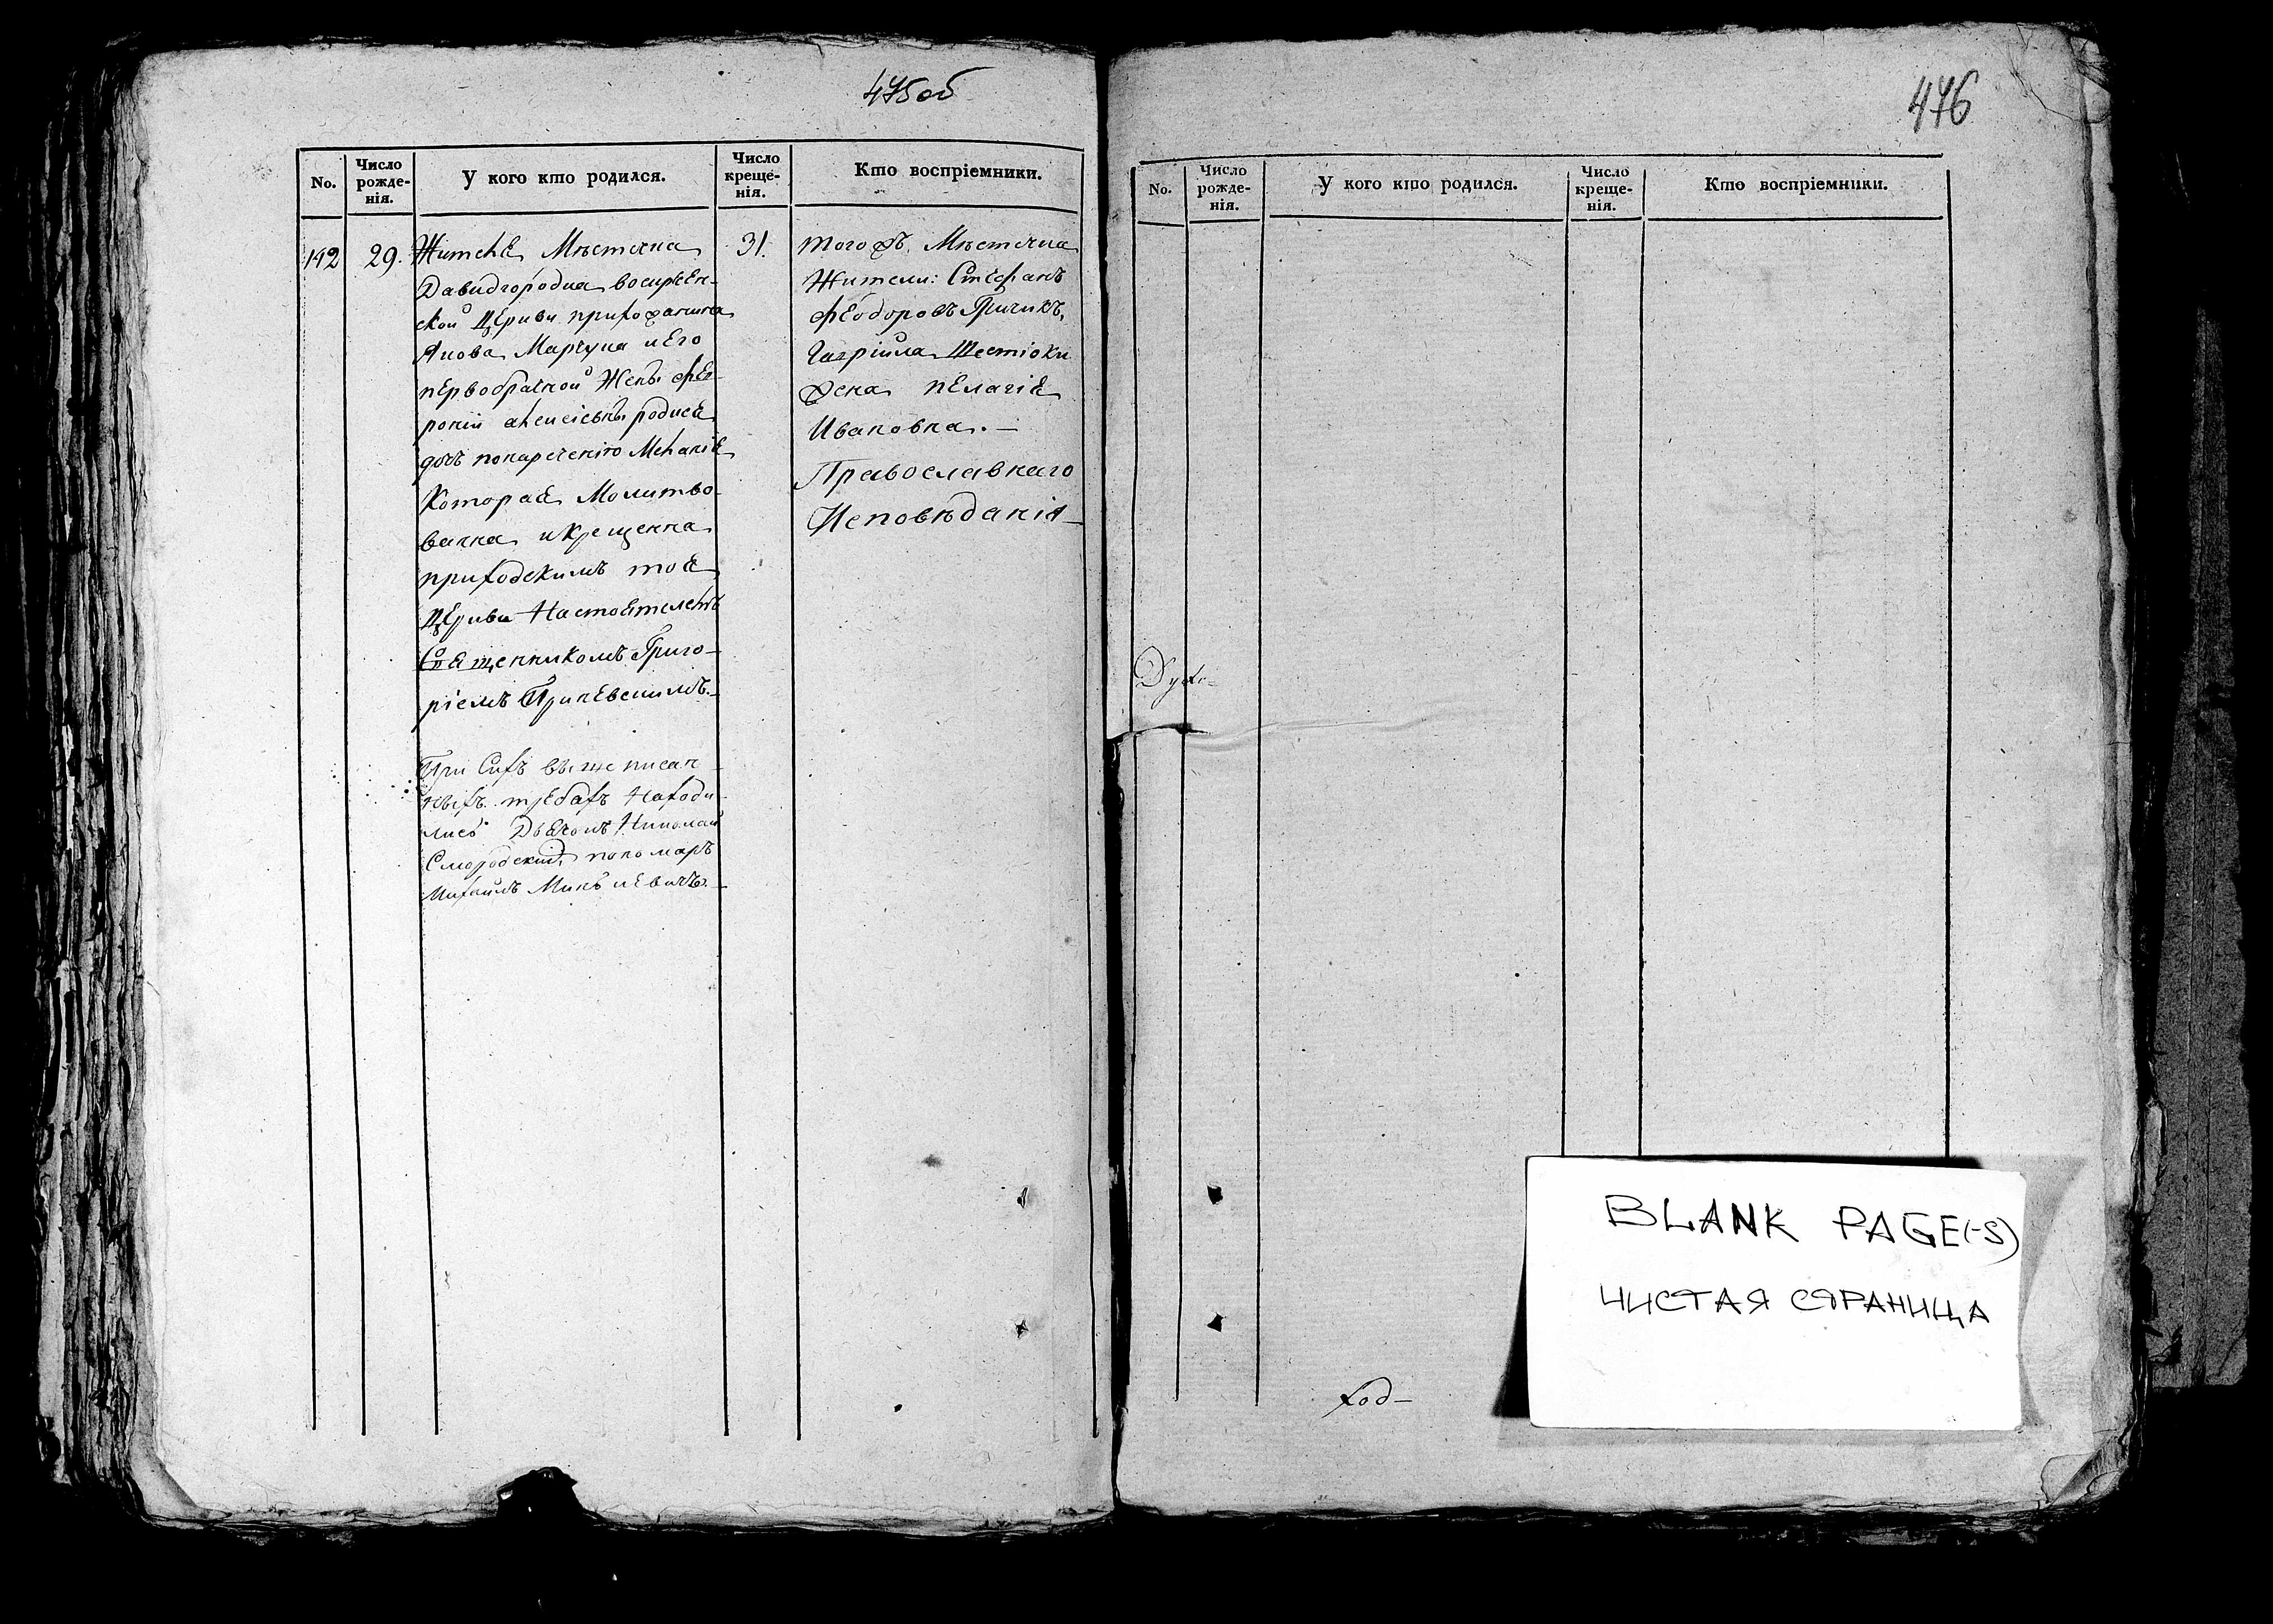 475об
No.
Число рожде-нія.
У кого кто родился.
Число креще-нія.
Кто воспріемники.
142
29.
Жителя Мѣстечка
Давидгородка воскресен-
ской Церкви прихожанина
Якова Марчука и его
первобрачной Жены Фев-
роніи
родися
дочъ по наречению Меланія
Которая Молитво-
ванна и Крещенна
приходскимъ тоя
Церкви Настоятелемъ
Священникомъ Григо-
ріемъ
При Сихъ вышеписан-
ныхъ требахъ Находи-
лись Дьячокъ Николай
Смородский, пономаръ
Михаилъ
31.
того жъ Мѣстечка
Жители: Стефанъ
Феодоровъ Гричикъ,
Гаврійла
жена Пелагія
Ивановна. —
Православнаго
Исповѣданія —
476
No.
Число рожде-нія.
У кого кто родился.
Число креще-нія.
Кто воспріемники.
Духо-
ход-
BLANK PAGE(-S)
ЧИСТАЯ СТРАНИЦА